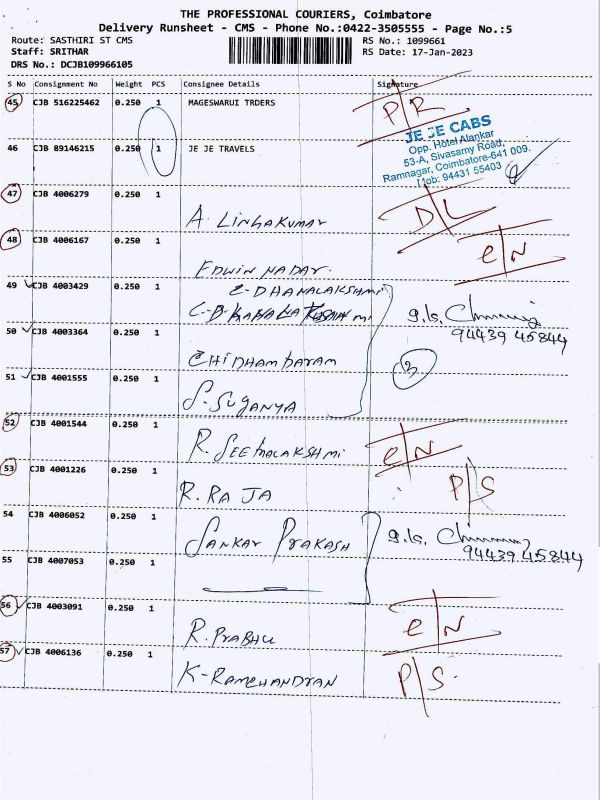 THE PROFESSIONAL COURIERS, Coimbatore
Delivery Runsheet - CMS - Phone No.:0422-3505555 - Page No.:5
Route: SASTHIRI ST CMS
RS No.: 1099661
Staff: SRITHAR
RS Date: 17-Jan-2023
DRS No.: DCJB109966105
S No Consignment No Weight PCS Consignee Details Signature
45 CJB 516225462 0.250 1 MAGESWARUI TRDERS P/R
JE JE CABS
Opp. Hotel Alankar
53-A, Sivasamy Road,
Ramnagar, Coimbatore-641 009.
Mob: 94431 55403
46 CJB 89146215 0.250 1 JE JE TRAVELS
47 CJB 4006279 0.250 1 A. LINGAKUMAR D/L
48 CJB 4006167 0.250 1 EDWIN NADAR. e/N
49 CJB 4003429 0.250 1 E-DHANALAKSHMI
g.ls.
94439 45844
50 CJB 4003364 0.250 1 CHIDHAMBARAM
3
51 CJB 4001555 0.250 1 S. SUGANYA
52 CJB 4001544 0.250 1 R. SEETHALAKSHMI e/N
53 CJB 4001226 0.250 1 R. RAJA P/S
54 CJB 4006052 0.250 1 SANKAR PRAKASH g.ls.
94439 45844
55 CJB 4007053 0.250 1
56 CJB 4003091 0.250 1 R. PRABHU e/N
57 CJB 4006136 0.250 1 K-RAMCHANDRAN P/S.